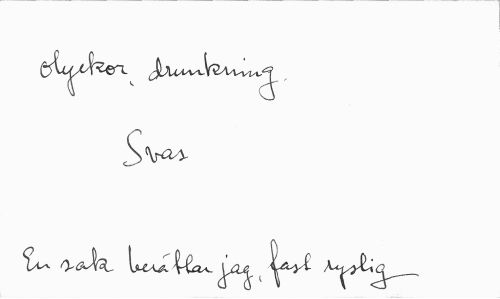 olyckor, drunkning.
Svas
En sak berättar jag, fast ryslig